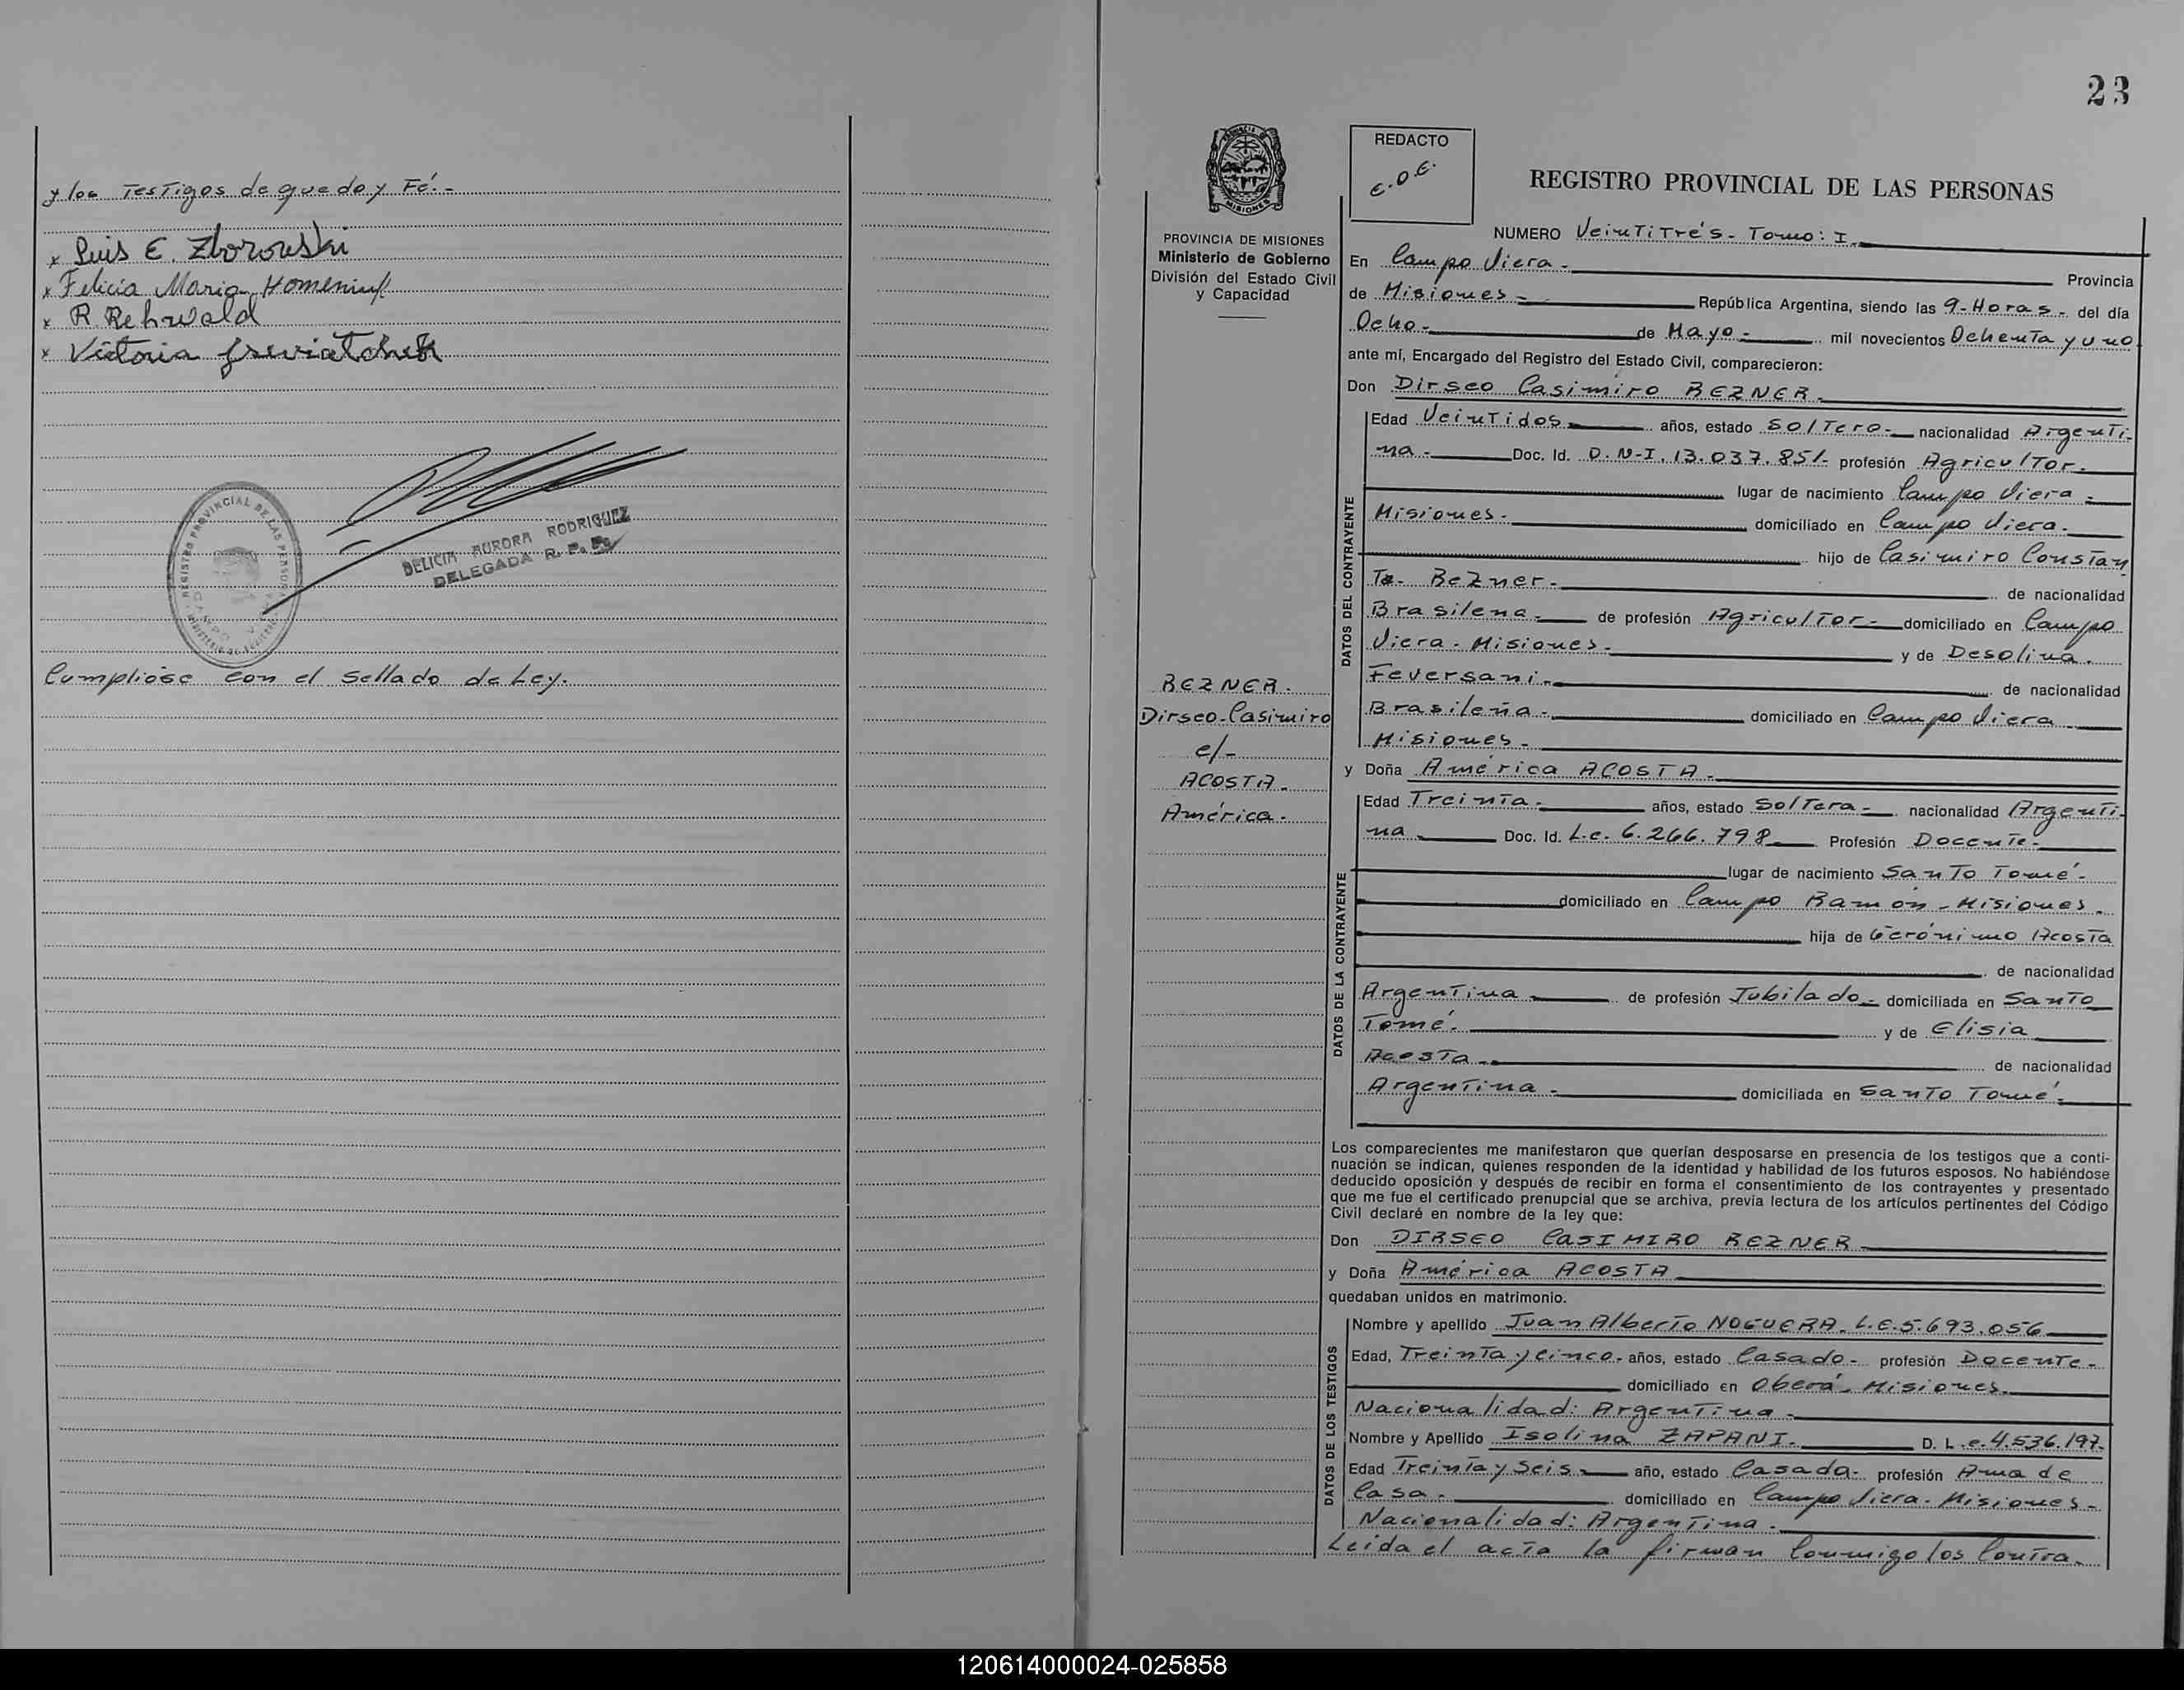 y los Testigos de que doy Fé.-
x Luis E. Zborowski
x Felicia Maria
x R. Rehwald
x Victoria
REGISTRO PROVINCIAL DE LAS PERSONAS
DELICIA AURORA RODRIGUEZ
DELEGADA R. P. P.
Cumplióse con el Sellado de Ley.
23
REDACTO
E.O.E.
REGISTRO PROVINCIAL DE LAS PERSONAS
PROVINCIA DE MISIONES
Ministerio de Gobierno
División del Estado Civil
y Capacidad
BEZNER.
Dirseo-Casimiro
c/-
ACOSTA.
América.
NUMERO Veintitrés- Tomo: I.
En Campo Viera- Provincia
de Misiones- República Argentina, siendo las 9-Horas- del día
Ocho- de Mayo- mil novecientos Ochenta y uno
ante mí, Encargado del Registro del Estado Civil, comparecieron:
Don Dirseo Casimiro BEZNER.
DATOS DEL CONTRAYENTE
Edad Veintidos años, estado Soltero- nacionalidad Argenti-
na- Doc. Id. D.N-I.13.037.851- profesión Agricultor.
lugar de nacimiento Campo Viera-
Misiones- domiciliado en Campo Viera-
hijo de Casimiro Constan
te- Bezner- de nacionalidad
Brasilena- de profesión Agricultor- domiciliado en Campo
Viera- Misiones- y de Desolina.
Feversani- de nacionalidad
Brasileña- domiciliado en Campo Viera
Misiones-
y Doña América ACOSTA-
DATOS DE LA CONTRAYENTE
Edad Treinta- años, estado Soltera- nacionalidad Argenti-
na- Doc. Id. L.c. 6.266.798 Profesión Docente-
lugar de nacimiento Santo Tomé-
domiciliado en Campo Ramón- Misiones-
hija de Gerónimo Acosta
de nacionalidad
Argentina- de profesión Jubilado- domiciliada en Santo
Tomé- y de Elisia
Acosta- de nacionalidad
Argentina- domiciliada en Santo Tomé-
Los comparecientes me manifestaron que querían desposarse en presencia de los testigos que a conti-
nuación se indican, quienes responden de la identidad y habilidad de los futuros esposos. No habiéndose
deducido oposición y después de recibir en forma el consentimiento de los contrayentes y presentado
que me fue el certificado prenupcial que se archiva, previa lectura de los artículos pertinentes del Código
Civil declaré en nombre de la ley que:
Don DIRSEO CASIMIRO BEZNER
y Doña América ACOSTA
quedaban unidos en matrimonio.
DATOS DE LOS TESTIGOS
Nombre y apellido Juan Alberto NOGUERA. L.E.5.693.056
Edad, Treinta y Cinco- años, estado Casado- profesión Docente-
domiciliado en Oberá- Misiones.
Nacionalidad: Argentina-
Nombre y Apellido Isolina ZAPANI- D. L.c.4.536.197-
Edad Treinta y Seis- año, estado Casada- profesión Ama de
Casa- domiciliado en Campo Viera- Misiones-
Nacionalidad: Argentina-
Leida el acta la firman Conmigo los Contra-
120614000024-025858